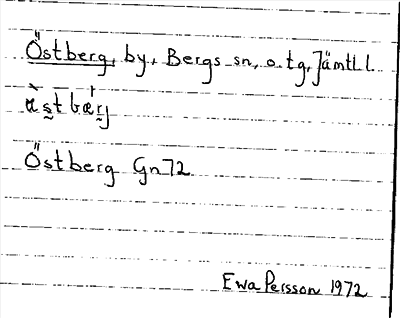 Östberg, by, Bergs sn, o. tg, Jämtl. l.
Östberg Gn72
Ewa Persson 1972